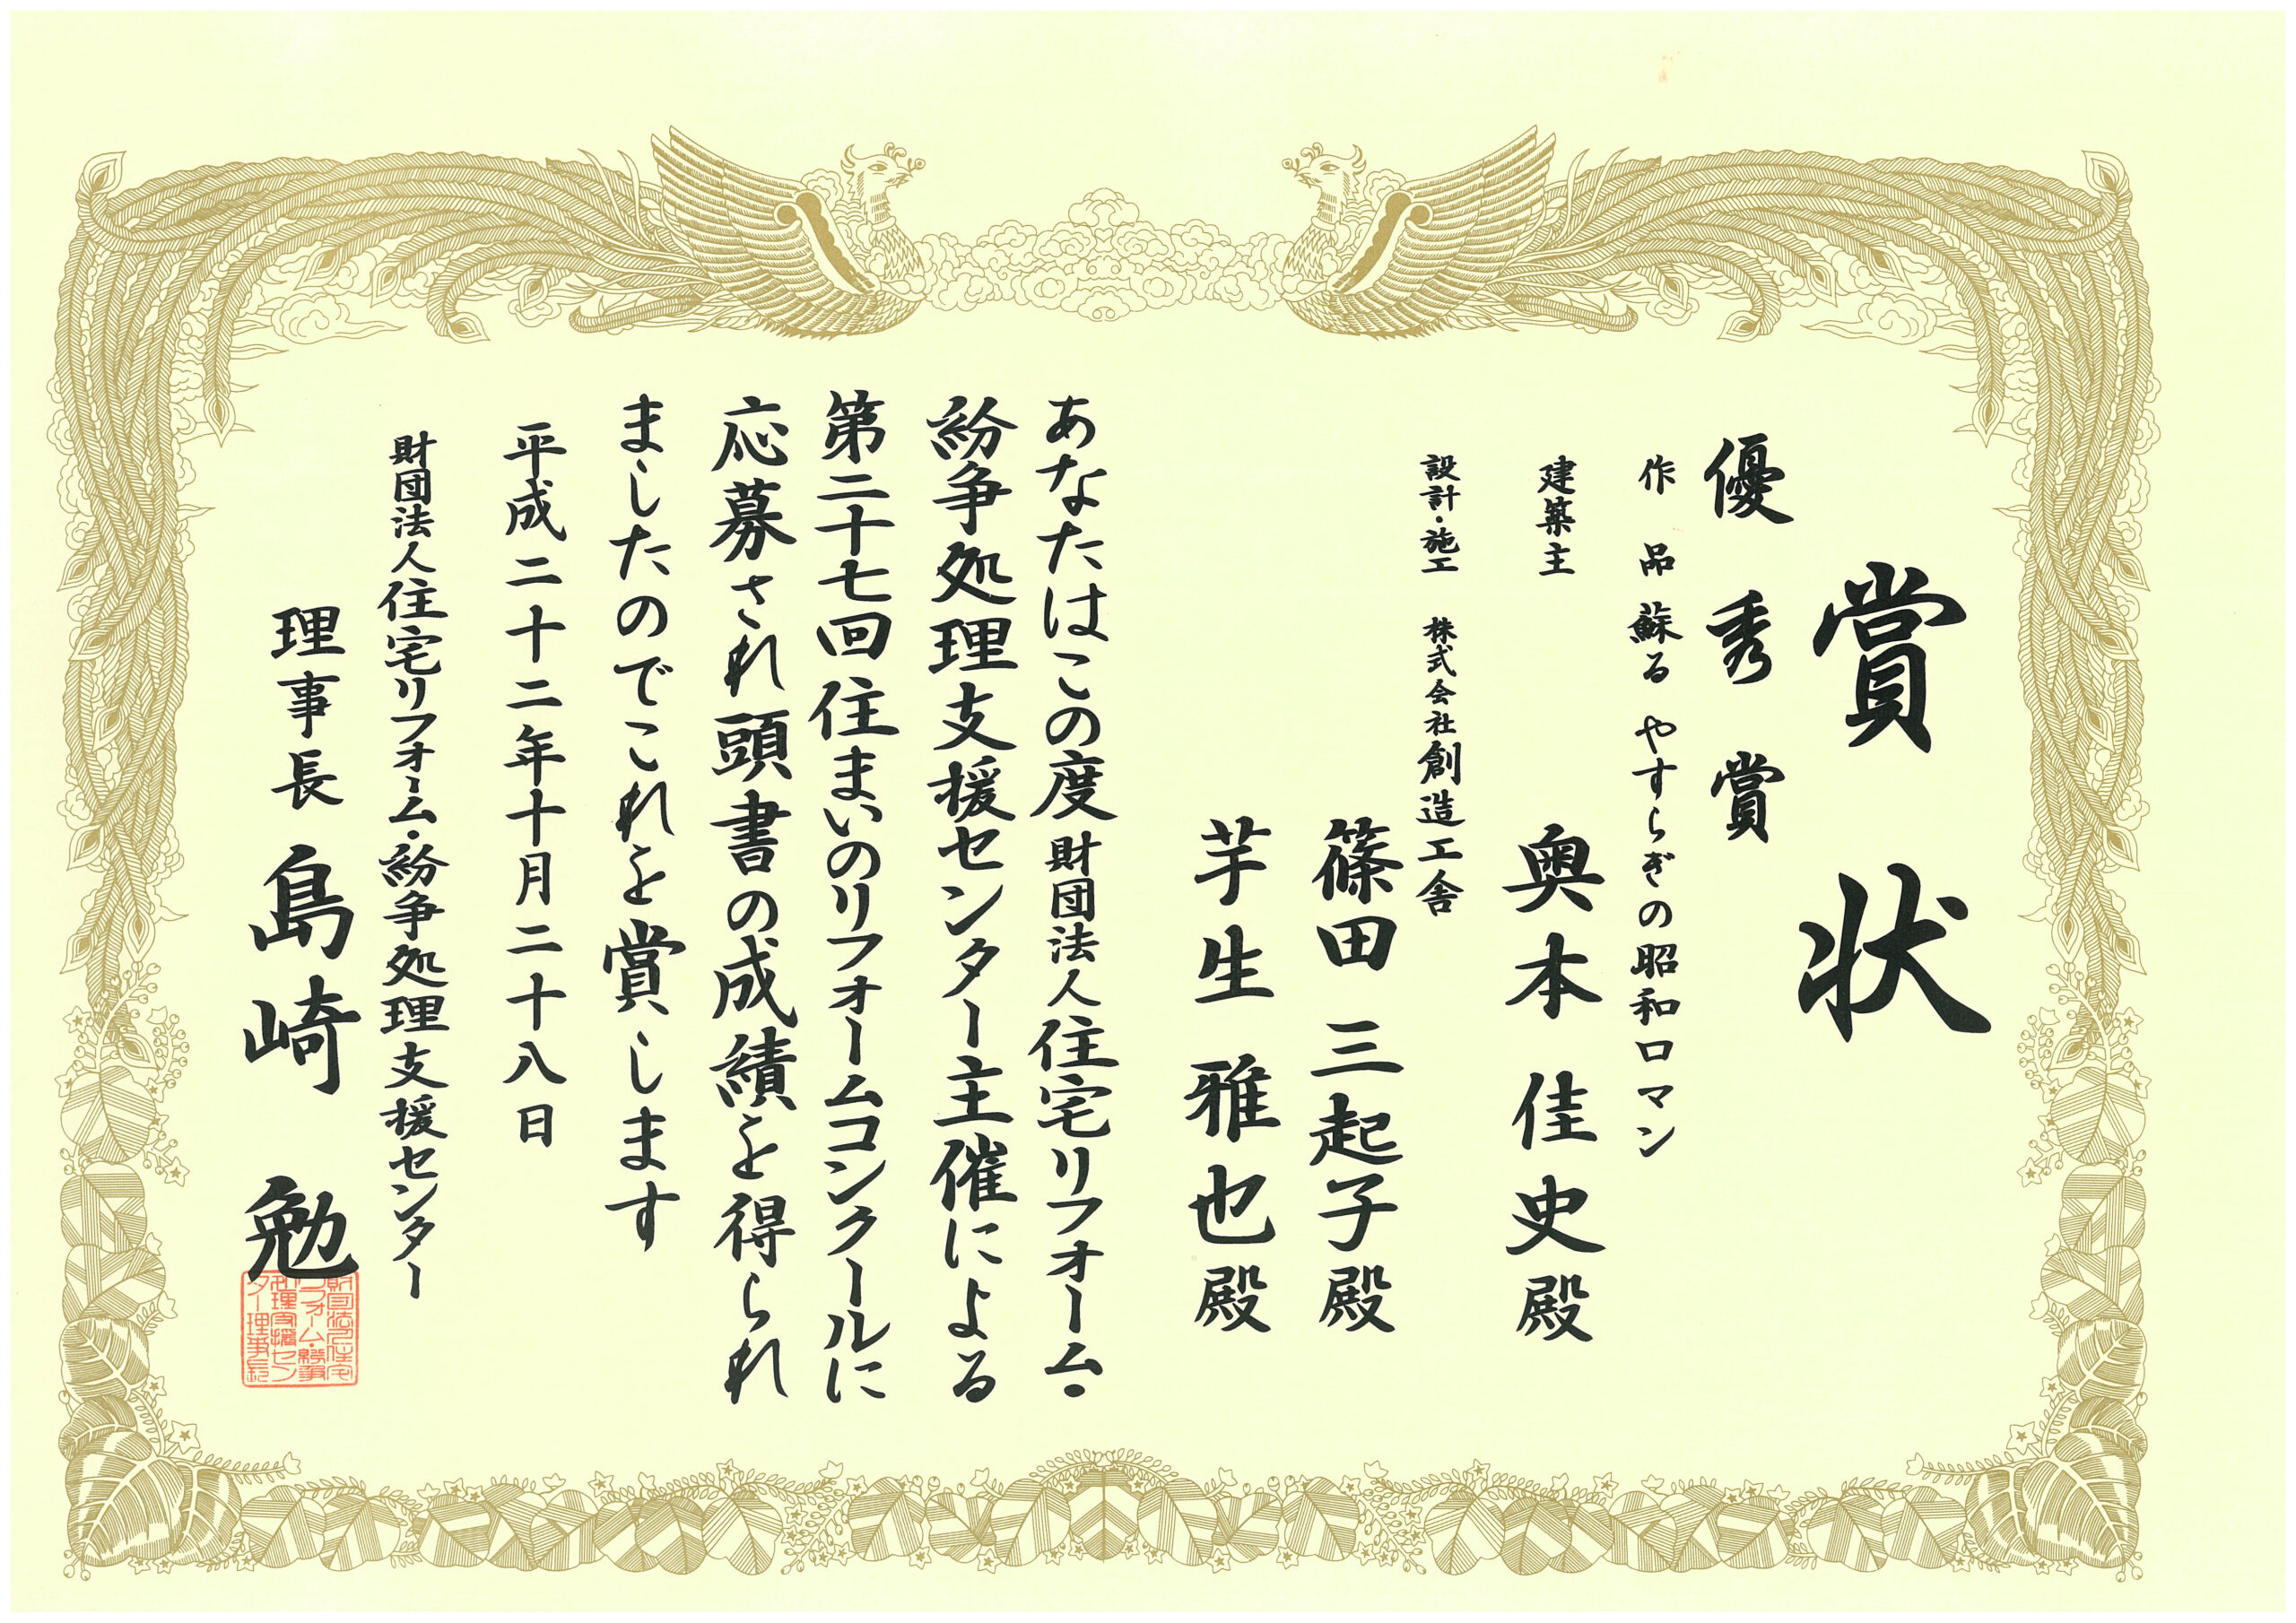 賞状
優秀賞
作品 蘇る やすらぎの昭和ロマン
建築主 奥本 佳史殿
設計・施工 株式会社創造工舎
篠田 三起子殿
芋生 雅也殿
あなたはこの度財団法人住宅リフォーム・
紛争処理支援センター主催による
第二十七回住まいのリフォームコンクールに
応募され頭書の成績を得られ
ましたのでこれを賞します
平成二十二年十月二十八日
財団法人住宅リフォーム・紛争処理支援センター
理事長 島崎 勉
財団法人住宅
リフォーム・紛争
処理支援セン
ター理事長印